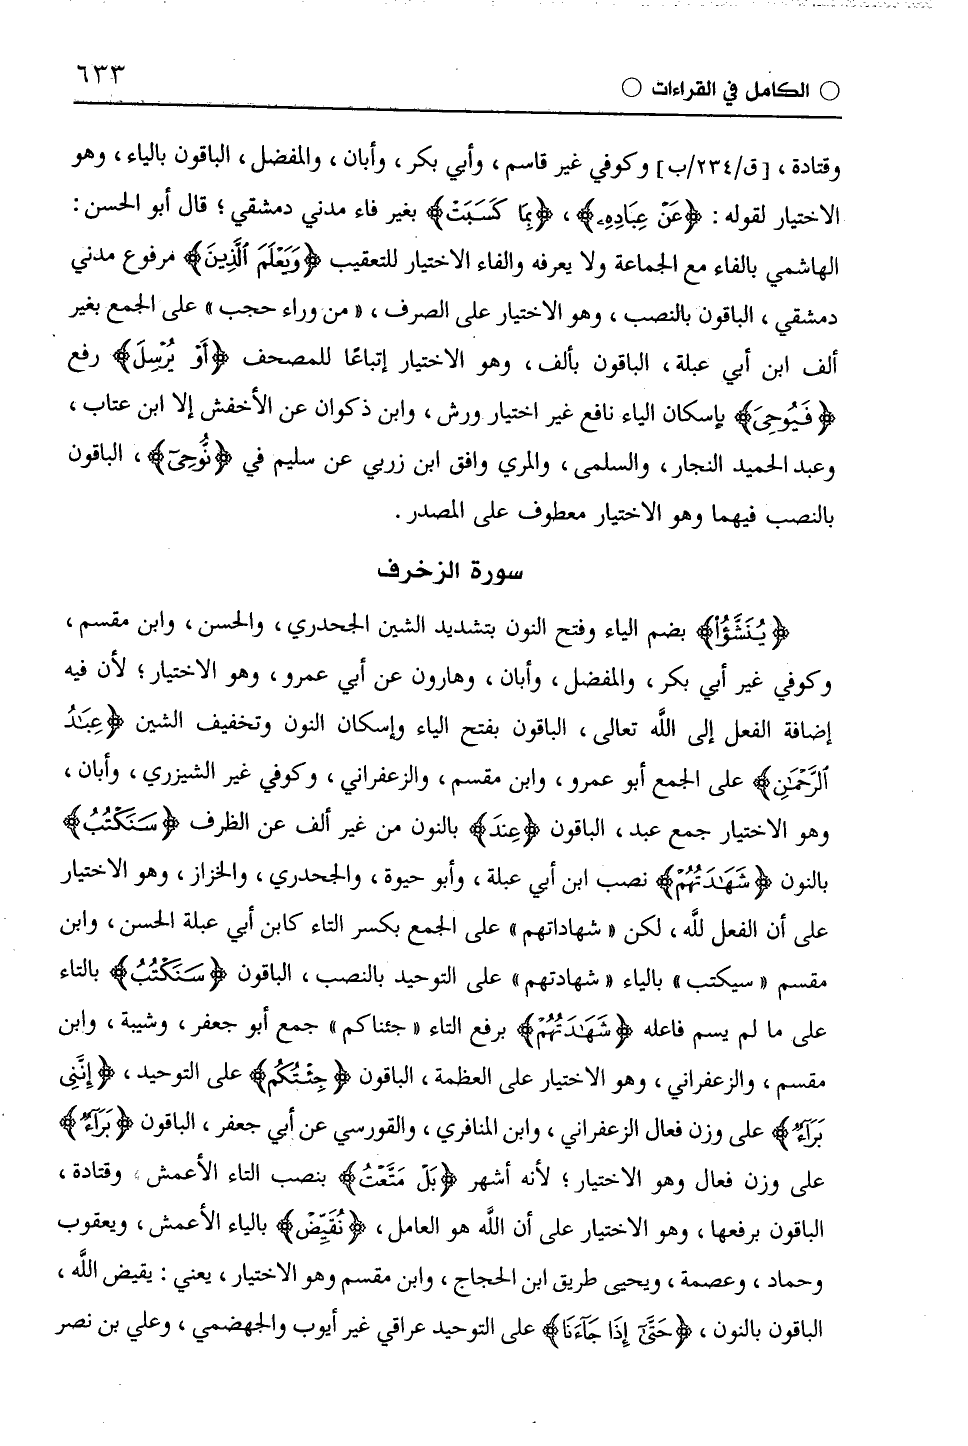 ○ الكامل في القراءات ○
٦٣٣
وقتادة ، [ق/٢٣٤/ب] وكوفي غير قاسم ، وأبي بكر ، وأبان ، والمفضل ، الباقون بالياء ، وهو
الاختيار لقوله : ﴿عَنْ عِبَادِهِۦ﴾ ، ﴿بِمَا كَسَبَتْ﴾ بغير فاء مدني دمشقي ؛ قال أبو الحسن :
الهاشمي بالفاء مع الجماعة ولا يعرفه والفاء الاختيار للتعقيب ﴿وَيَعْلَمَ ٱلَّذِينَ﴾ مرفوع مدني
دمشقي ، الباقون بالنصب ، وهو الاختيار على الصرف ، « من وراء حجب » على الجمع بغير
ألف ابن أبي عبلة ، الباقون بألف ، وهو الاختيار إتباعًا للمصحف ﴿أَوْ يُرْسِلَ﴾ رفع
﴿فَيُوحِىَ﴾ بإسكان الياء نافع غير اختيار ورش ، وابن ذكوان عن الأخفش إلا ابن عتاب ،
وعبد الحميد النجار ، والسلمى ، والمري وافق ابن زربي عن سليم في ﴿نُّوحِىٓ﴾ ، الباقون
بالنصب فيهما وهو الاختيار معطوف على المصدر .
سورة الزخرف
﴿يُنَشَّؤُاْ﴾ بضم الياء وفتح النون بتشديد الشين الجحدري ، والحسن ، وابن مقسم ،
وكوفي غير أبي بكر ، والمفضل ، وأبان ، وهارون عن أبي عمرو ، وهو الاختيار ؛ لأن فيه
إضافة الفعل إلى اللَّه تعالى ، الباقون بفتح الياء وإسكان النون وتخفيف الشين ﴿عِبَٰدُ
ٱلرَّحْمَٰنِ﴾ على الجمع أبو عمرو ، وابن مقسم ، والزعفراني ، وكوفي غير الشيزري ، وأبان ،
وهو الاختيار جمع عبد ، الباقون ﴿عِندَ﴾ بالنون من غير ألف عن الظرف ﴿سَنَكْتُبُ﴾
بالنون ﴿شَهَٰدَتُهُمْ﴾ نصب ابن أبي عبلة ، وأبو حيوة ، والجحدري ، والخزاز ، وهو الاختيار
على أن الفعل للَّه ، لكن « شهاداتهم » على الجمع بكسر التاء كابن أبي عبلة الحسن ، وابن
مقسم « سيكتب » بالياء « شهادتهم » على التوحيد بالنصب ، الباقون ﴿سَنَكْتُبُ﴾ بالتاء
على ما لم يسم فاعله ﴿شَهَٰدَتُهُمْ﴾ برفع التاء « جئناكم » جمع أبو جعفر ، وشيبة ، وابن
مقسم ، والزعفراني ، وهو الاختيار على العظمة ، الباقون ﴿جِئْتُكُم﴾ على التوحيد ، ﴿إِنَّنِى
بَرَآءٌ﴾ على وزن فعال الزعفراني ، وابن المنافري ، والقورسي عن أبي جعفر ، الباقون ﴿بَرَآءٌ﴾
على وزن فعال وهو الاختيار ؛ لأنه أشهر ﴿بَلْ مَتَّعْتُ﴾ بنصب التاء الأعمش ، وقتادة ،
الباقون برفعها ، وهو الاختيار على أن اللَّه هو العامل ، ﴿نُقَيِّضْ﴾ بالياء الأعمش ، ويعقوب
وحماد ، وعصمة ، ويحيى طريق ابن الحجاج ، وابن مقسم وهو الاختيار ، يعني : يقيض اللَّه ،
الباقون بالنون ، ﴿حَتَّىٰٓ إِذَا جَآءَنَا﴾ على التوحيد عراقي غير أيوب والجهضمي ، وعلي بن نصر